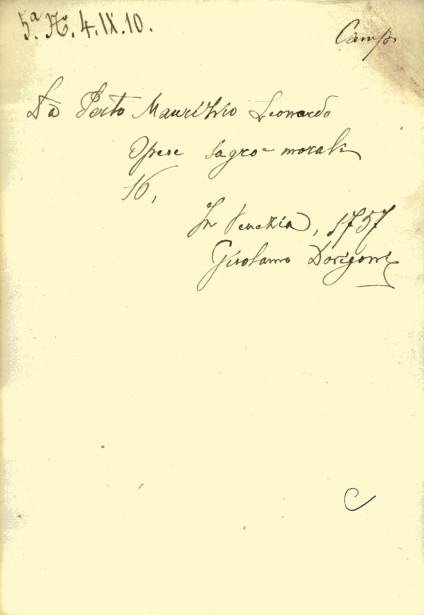 5.ª A. 4. IX. 10.
Camp.
Da Porto Maurizio Leonardo
Opere sagro-morali
16,
In Venezia, 1757
Girolamo Dorigoni
C